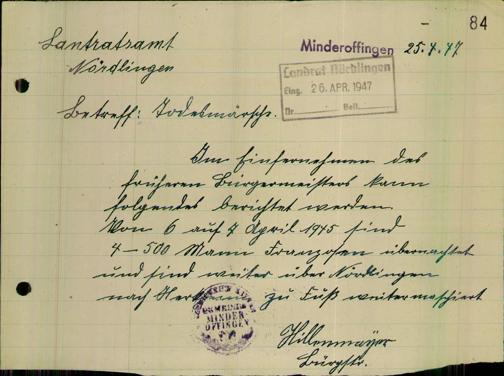 84
Landratsamt
Nördlingen
Minderoffingen 25.4.47
Landrat Nördlingen
Eing. 26. APR. 1947
Nr. Beil.
Betreff: Todesmärsche.
Im Einfernehmen des
früheren Bürgermeisters kann
folgendes berichtet werden.
Von 6 auf 7 April 1945 sind
4–500 Mann Franzosen übernachtet
und sind weiter über Nördlingen
nach zu Fuß weitermaschiert
GEMEINDE
MINDER
OFFINGEN
Hillenmayer
Bürgstr.